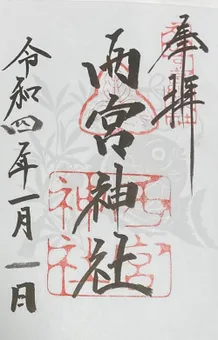 奉拝
西宮神社
西宮神社
令和四年一月一日